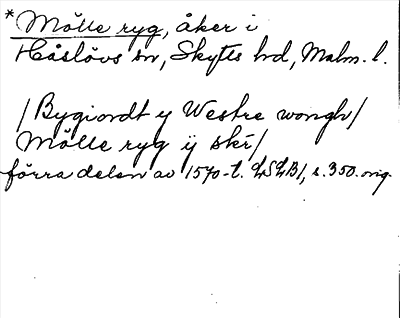 *Mölle ryg, åker i
Håslövs sn, Skytts hd, Malm. l.
/Bygiordt y Westre wongh/
Mölle ryg ij skr/
förra delen av 1570-t. LSLB1, s. 350. orig.